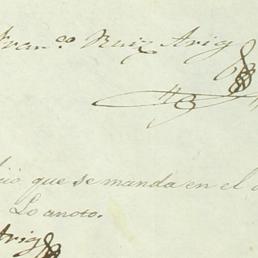 Fran.co Ruiz Arig
que se manda en el
Lo anoto.
Arig